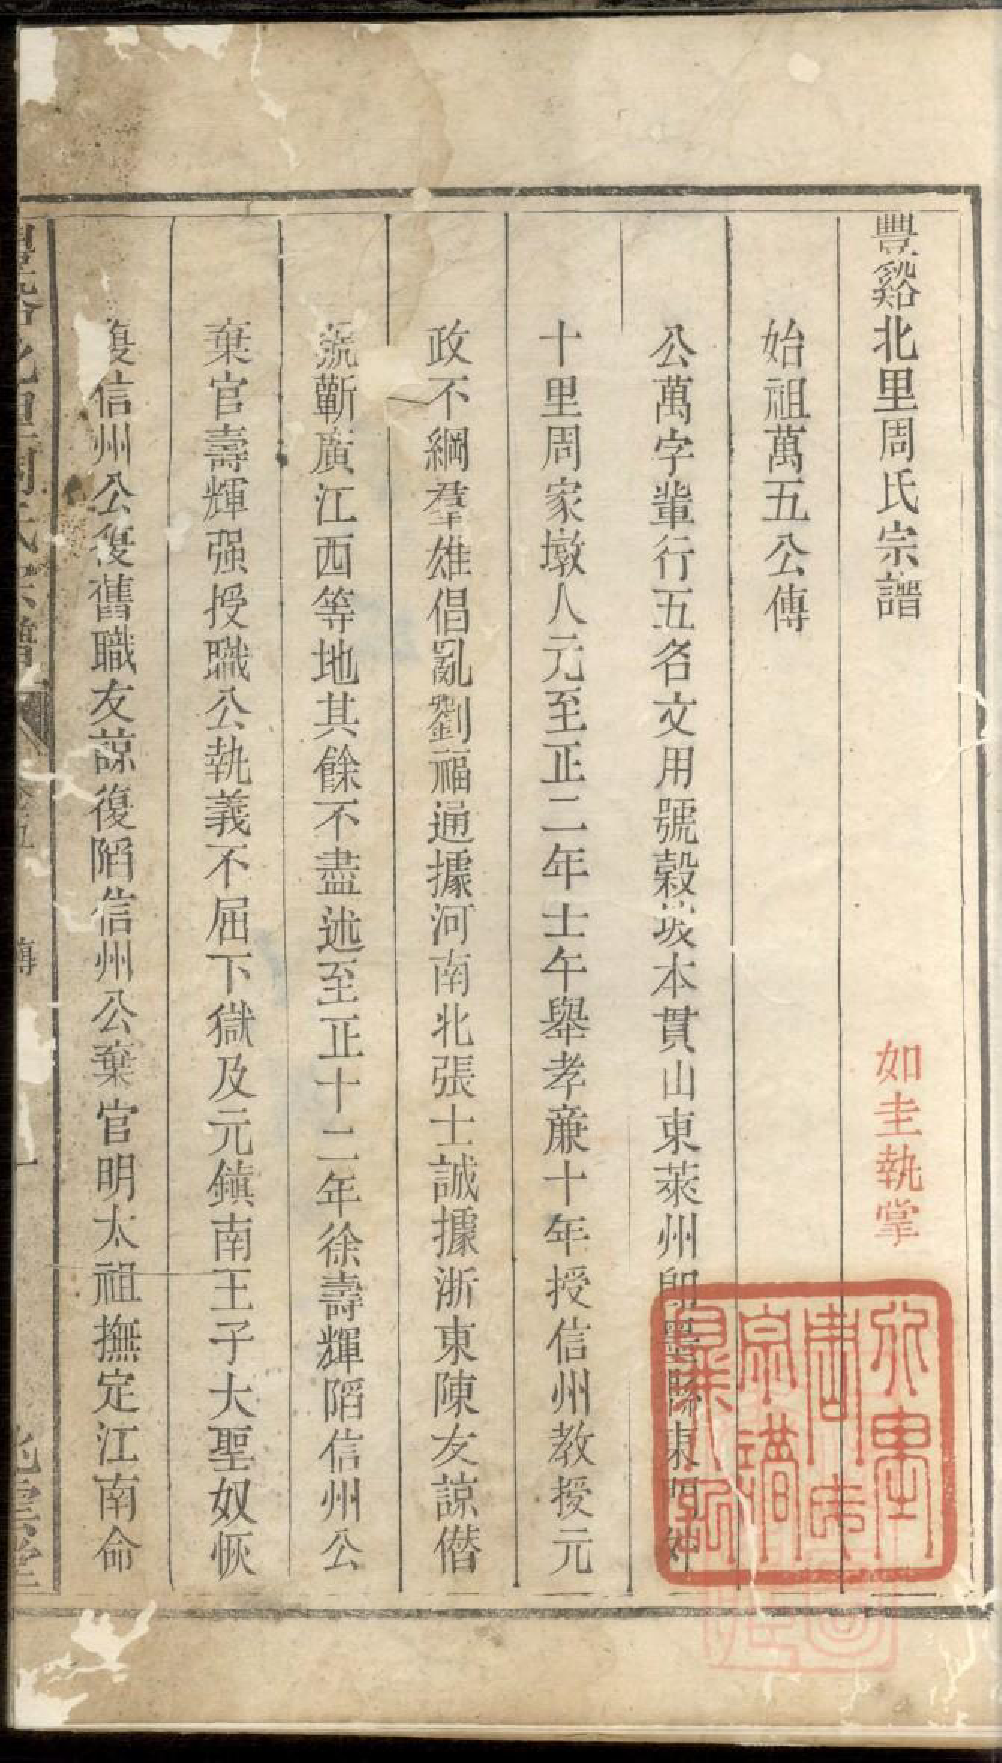 豐谿北里周氏宗譜
如圭執掌
始祖萬五公傳
公萬字輩行五名文用號榖坡本貫山東萊州即墨縣東門外
十里周家墩人元至正二年士午舉孝廉十年授信州教授元
政不綱羣雄倡亂劉福通據河南北張士誠據浙東陳友諒僭
號蘄廣江西等地其餘不盡述至正十二年徐壽輝陷信州公
棄官壽輝强授職公執義不屈下獄及元鎮南王子大聖奴恢
復信州公復舊職友諒復陷信州公棄官明太祖撫定江南命
豐谿北里周氏宗譜
傳
一